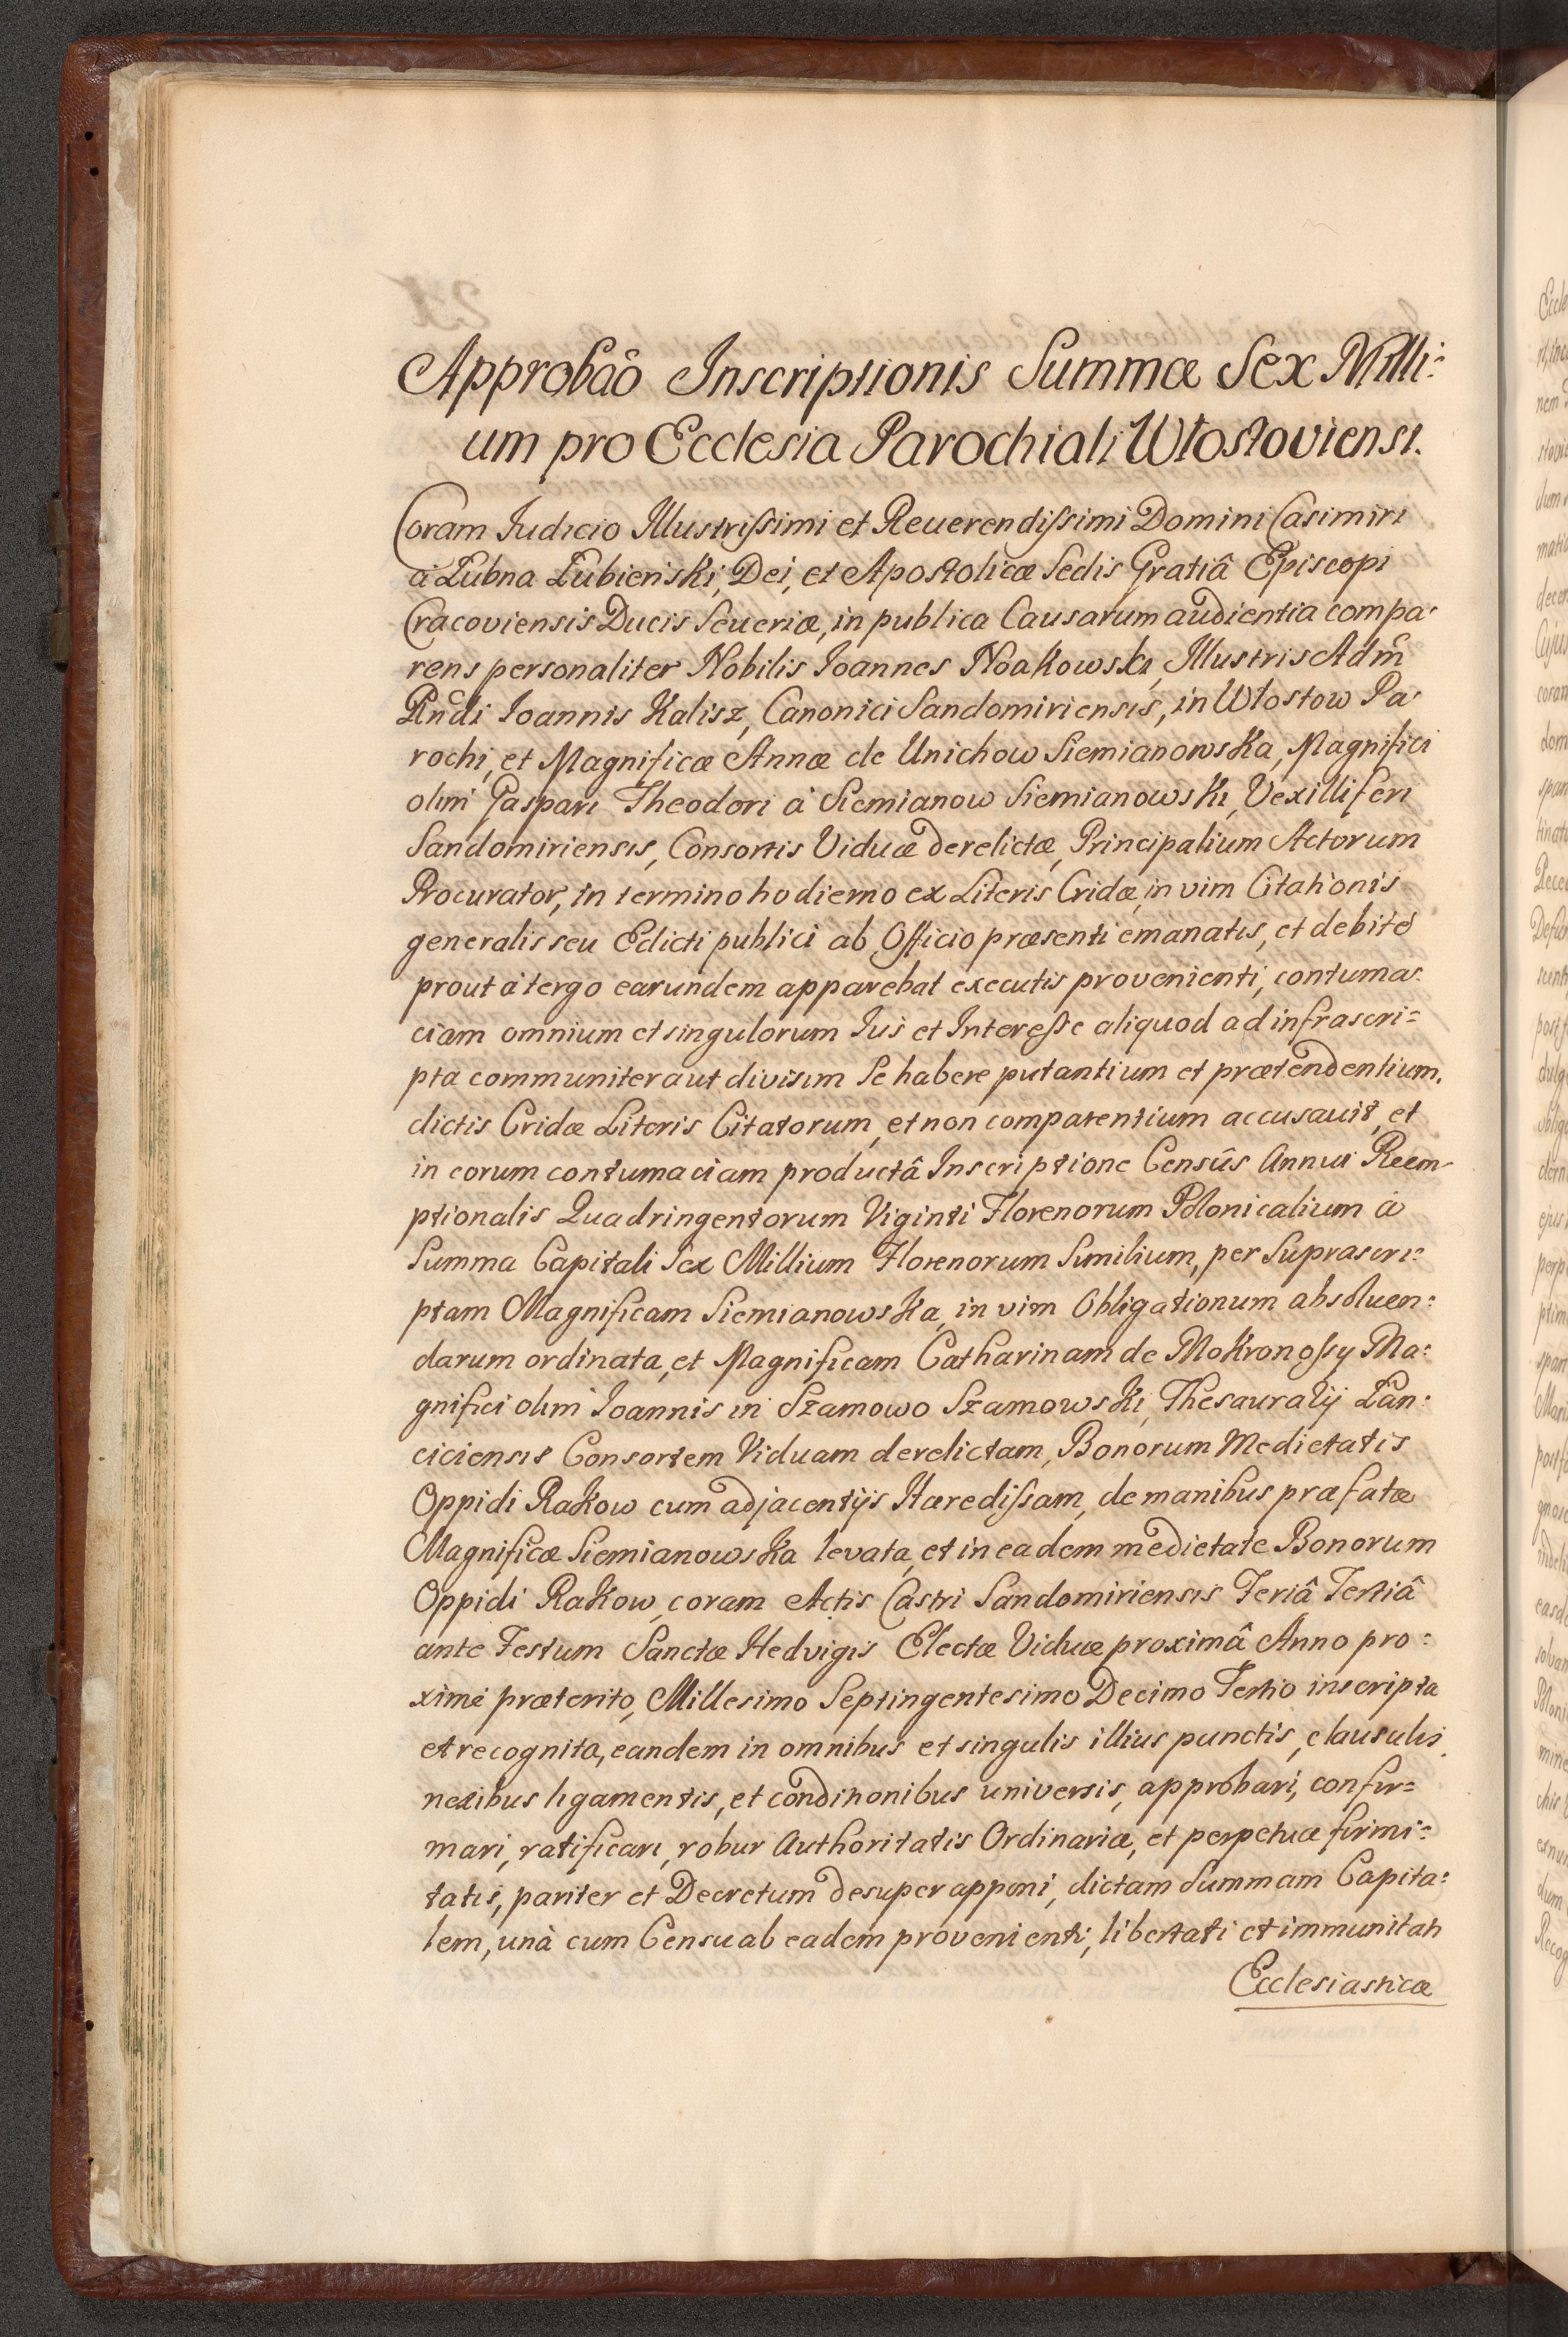 Approbaõ Inscriptionis Summæ Sex Milli:
um pro Ecclesia Parochiali Włostoviensi.
Coram Iudicio Illustrissimi et Reuerendissimi Domini Casimiri
à Łubna Łubieński, Dei, et Apostolicæ Sedis Gratiâ Episcopi
Cracoviensis Ducis Seueriæ, in publica Causarum audientia compa:
rens personaliter Nobilis Ioannes Noakowski, Illustris Adm̃
Rñdi Ioannis Kalisz, Canonici Sandomiriensis, in Włostow Pa:
rochi, et Magnificæ Annæ de Unichow Siemianowska, Magnifici
olim Gaspari Theodori à Siemianow Siemianowski, Vexilliferi
Sandomiriensis, Consortis Viduæ derelictæ, Principalium Actorum
Procurator, in termino hodierno ex Literis Cridæ, in vim Citationis
generalis seu Edicti publici ab Officio præsenti emanatis, et debitè
prout à tergo earundem apparebat executis provenienti, contuma:
ciam omnium et singulorum Ius et Interesse aliquod ad infrascri:
pta communiter aut divisim se habere putantium et prætendentium,
dictis Cridæ Literis Citatorum, et non comparentium accusauit, et
in eorum contumaciam productâ Inscriptione Censûs Annui Reem-
ptionalis Quadringentorum Viginti Florenorum Polonicalium à
Summa Capitali Sex Millium Florenorum Similium, per Suprascri:
ptam Magnificam Siemianowska, in vim Obligationum absoluen:
darum ordinata, et Magnificam Catharinam de Mokronossy Ma:
gnifici olim Ioannis in Szamowo Szamowski, Thesaurarij Łan:
ciciensis Consortem Viduam derelictam, Bonorum Medietatis
Oppidi Rakow cum adjacentijs Hæredissam, de manibus præfatæ
Magnificæ Siemianowska levata, et in eadem medietate Bonorum
Oppidi Rakow, coram Actis Castri Sandomiriensis Feriâ Tertiâ
ante Festum Sanctæ Hedvigis Electæ Viduæ proximâ Anno pro:
ximè præterito, Millesimo Septingentesimo Decimo Tertio inscripta
et recognita, eandem in omnibus et singulis illius punctis, clausulis,
nexibus ligamentis, et conditionibus universis, approbari, confir:
mari, ratificari, robur Authoritatis Ordinariæ, et perpetuæ firmi:
tatis, pariter et Decretum desuper apponi, dictam Summam Capita:
lem, unà cum Censu ab eadem provenienti, libertati et immunitati
Ecclesiasticæ